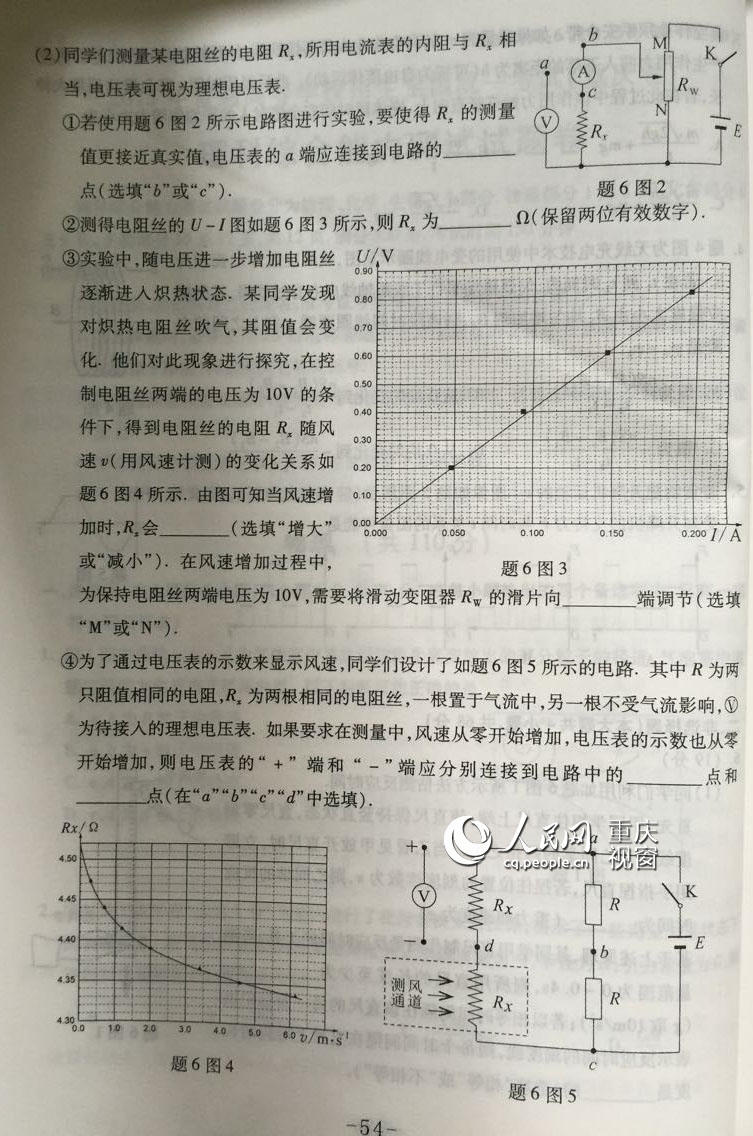 (2)同学们测量某电阻丝的电阻 Rx,所用电流表的内阻与 Rx 相
当,电压表可视为理想电压表.
①若使用题6图2所示电路图进行实验,要使得 Rx 的测量
值更接近真实值,电压表的 a 端应连接到电路的______
点(选填“b”或“c”).
a
b
c
A
V
Rx
M
N
RW
K
E
题6图2
②测得电阻丝的 U-I 图如题6图3所示,则 Rx 为______Ω(保留两位有效数字).
③实验中,随电压进一步增加电阻丝
逐渐进入炽热状态. 某同学发现
对炽热电阻丝吹气,其阻值会变
化. 他们对此现象进行探究,在控
制电阻丝两端的电压为10V的条
件下,得到电阻丝的电阻 Rx 随风
速 v(用风速计测)的变化关系如
题6图4所示. 由图可知当风速增
加时,Rx会______(选填“增大”
或“减小”). 在风速增加过程中,
U/V
0.90
0.80
0.70
0.60
0.50
0.40
0.30
0.20
0.10
0.00
0.000 0.050 0.100 0.150 0.200 I/A
题6图3
为保持电阻丝两端电压为10V,需要将滑动变阻器 RW 的滑片向______端调节(选填
“M”或“N”).
④为了通过电压表的示数来显示风速,同学们设计了如题6图5所示的电路. 其中 R 为两
只阻值相同的电阻,Rx 为两根相同的电阻丝,一根置于气流中,另一根不受气流影响,Ⓥ
为待接入的理想电压表. 如果要求在测量中,风速从零开始增加,电压表的示数也从零
开始增加,则电压表的“+”端和“-”端应分别连接到电路中的______点和
______点(在“a”“b”“c”“d”中选填).
Rx/Ω
4.50
4.45
4.40
4.35
4.30
0.0 1.0 2.0 3.0 4.0 5.0 6.0 v/m·s-1
题6图4
人民网
cq.people.cn
重庆
视窗
+
V
-
Rx
d
测风
通道
Rx
a
R
b
R
c
K
E
题6图5
-54-